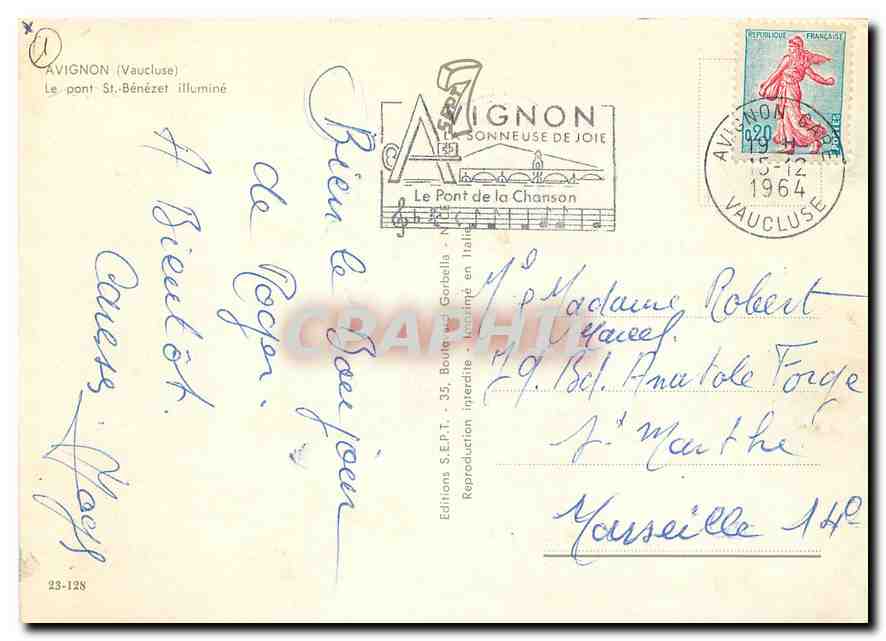 1
AVIGNON (Vaucluse)
Le pont St.-Bénézet illuminé
Bien le Bonjour
de Roger.
A Bientôt.
Caresse. Roger
23-128
Editions S.E.P.T. - 35, Boulevard Gorbella - NICE
Reproduction interdite - Imprimé en Italie
SEPT
AVIGNON
LA SONNEUSE DE JOIE
Le Pont de la Chanson
REPUBLIQUE FRANÇAISE
0,20
POSTES
AVIGNON GARE
19 H
15-12
1964
VAUCLUSE
CPAPHIL
Madame Robert
Marcel.
79. Bd. Anatole Forge
St Marthe
Marseille 14e